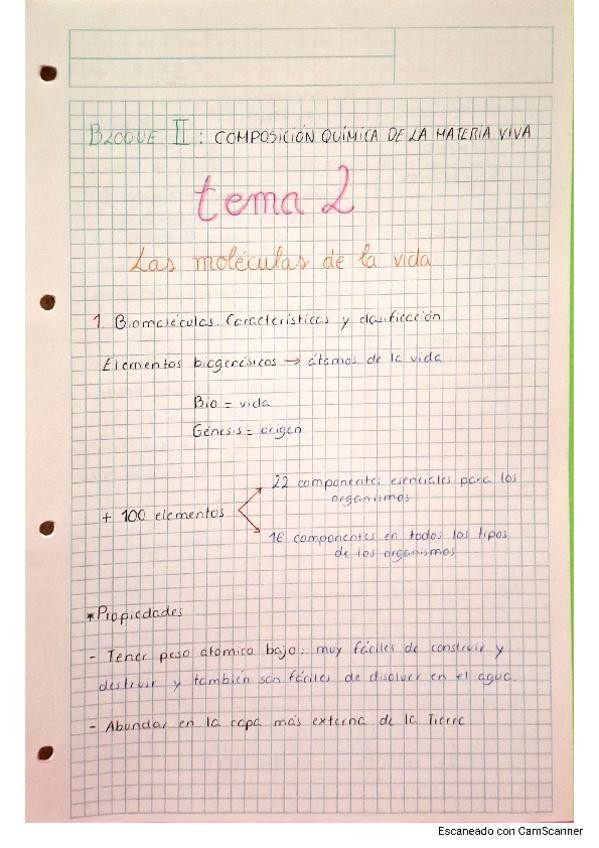 BLOQUE II : COMPOSICIÓN QUÍMICA DE LA MATERIA VIVA
tema 2
Las moléculas de la vida
1. Biomoléculas. Características y clasificación
Elementos biogenésicos → átomos de la vida
Bio = vida
Génesis = origen
22 componentes esenciales para los
organismos
+ 100 elementos
16 componentes en todos los tipos
de los organismos
*Propiedades
- Tener peso atómico bajo: muy fáciles de construir y
destruir y también son fáciles de disolver en el agua.
- Abundar en la capa más externa de la Tierra
Escaneado con CamScanner